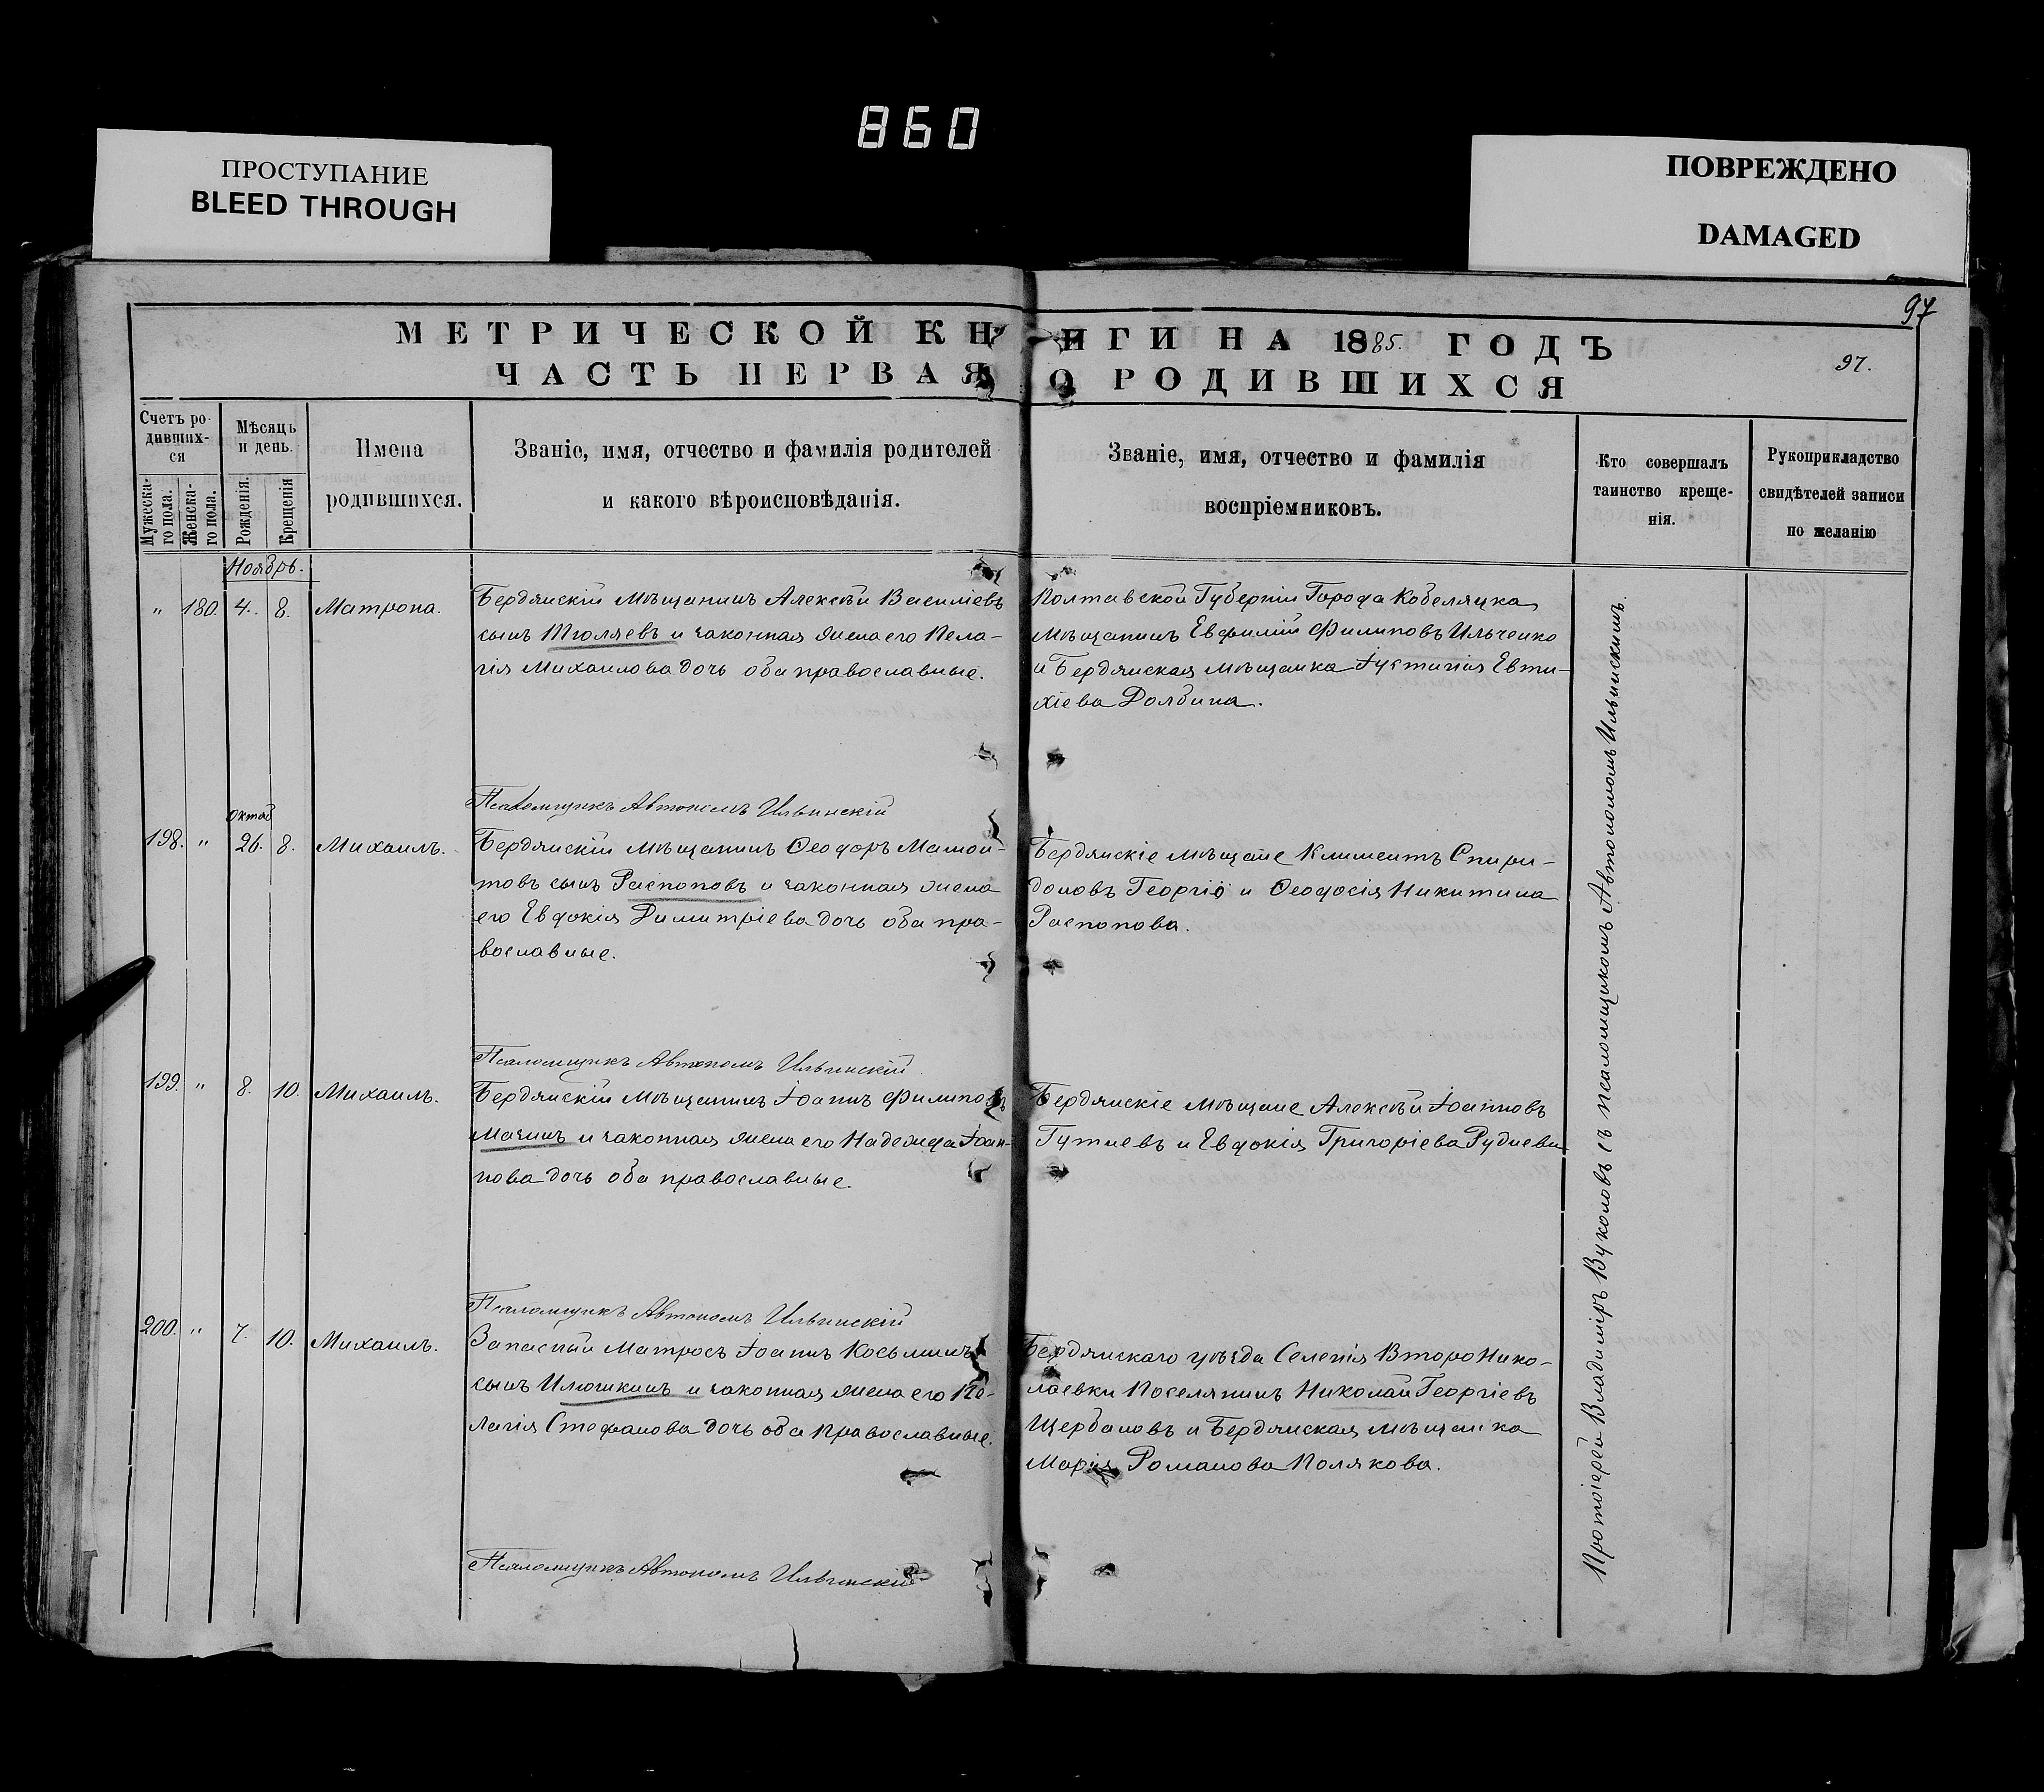 860
ПРОСТУПАНИЕ
BLEED THROUGH
ПОВРЕЖДЕНО
DAMAGED
97
МЕТРИЧЕСКОЙ КНИГИ НА 1885. ГОДЪ
ЧАСТЬ ПЕРВАЯ О РОДИВШИХСЯ
97.
Счетъ ро-
дивших-
ся
Мужеска-
го пола.
Женска-
го пола.
Мѣсяцъ
и день.
Рожденія.
Крещенія
Имена
родившихся.
Званіе, имя, отчество и фамилія родителей
и какого вѣроисповѣданія.
Званіе, имя, отчество и фамилія
воспріемниковъ.
Кто совершалъ
таинство креще-
нія.
Рукоприкладство
свидѣтелей записи
по желанію
Ноябрь.
" 180. 4. 8. Матрона.
Бердянскій мѣщанинъ Алексѣй Василіевъ
сынъ Тюляевъ и законная жена его Пела-
гія Михаилова дочь оба православные.
Полтавской Губерніи Города Кобеляцка
мѣщанинъ Евфимій Филиповъ Ильченко
и Бердянская мѣщанка Іустинія Евти-
хіева Долбина.
Псаломщикъ Автономъ Ильинскій
Октяб
198. " 26. 8. Михаилъ.
Бердянскій мѣщанинъ Ѳеодоръ Мамон-
товъ сынъ Распоповъ и законная жена
его Евдокія Димитріева дочь оба пра-
вославные.
Бердянскіе мѣщане Климентъ Спири-
доновъ Георгіо и Ѳеодосія Никитина
Распопова.
Псаломщикъ Автономъ Ильинскій
199. " 8. 10. Михаилъ.
Бердянскій мѣщанинъ Іоаннъ Филиповъ
Мачинъ и законная жена его Надежда Іоан-
нова дочь оба православные.
Бердянскіе мѣщане Алексѣй Іоанновъ
Гутневъ и Евдокія Григоріева Руднева
Псаломщикъ Автономъ Ильинскій
200. " 7. 10. Михаилъ.
Запасный Матросъ Іоаннъ Косьминъ
сынъ Илюшкинъ и законная жена его Пе-
лагія Стефанова дочь оба православные.
Бердянскаго уѣзда Селенія Второ Нико-
лаевки Поселянинъ Николай Георгіевъ
Щербановъ и Бердянская мѣщанка
Марія Романова Полякова.
Псаломщикъ Автономъ Ильинскій
Протоіерей Владиміръ Вуколовъ съ псаломщикомъ Автономомъ Ильинскимъ.